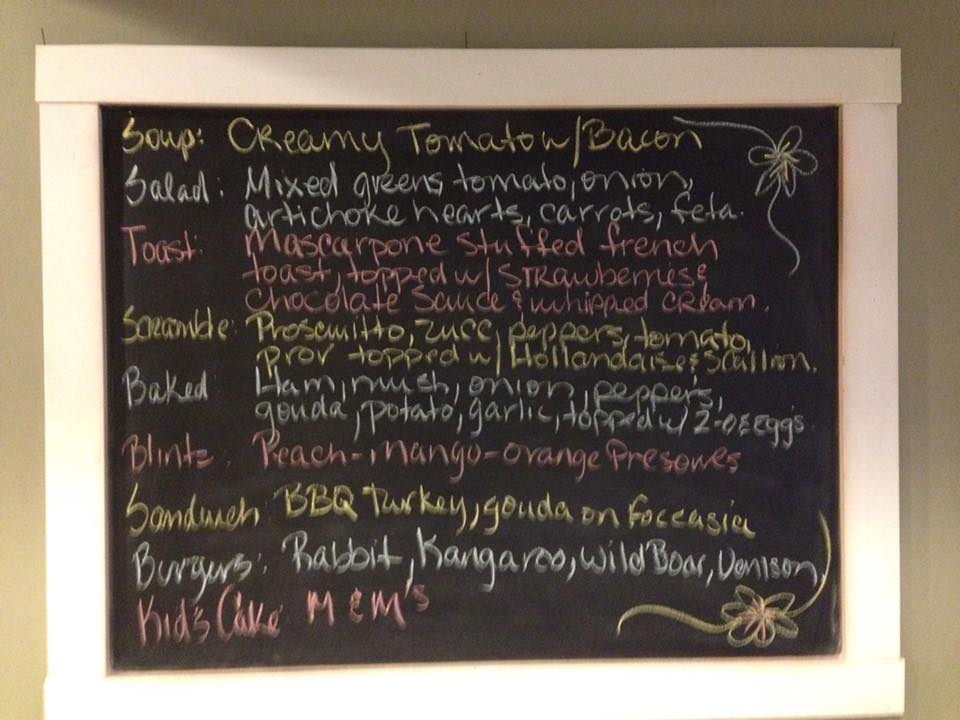 Soup: Creamy Tomato w/Bacon
Salad: Mixed greens, tomato, onion,
artichoke hearts, carrots, feta.
Toast: Mascarpone stuffed french
toast, topped w/ Strawberries &
Chocolate Sauce & whipped cream.
Scramble: Proscuitto, zucc, peppers, tomato,
prov topped w/ Hollandaise & Scallion.
Baked Ham, mush, onion, peppers,
gouda, potato, garlic, topped w/ 2-oe eggs.
Blintz: Peach-Mango-Orange Preserves
Sandwich BBQ Turkey, gouda on foccasia
Burgers: Rabbit, Kangaroo, Wild Boar, Venison,
Kid's Cake M & M's